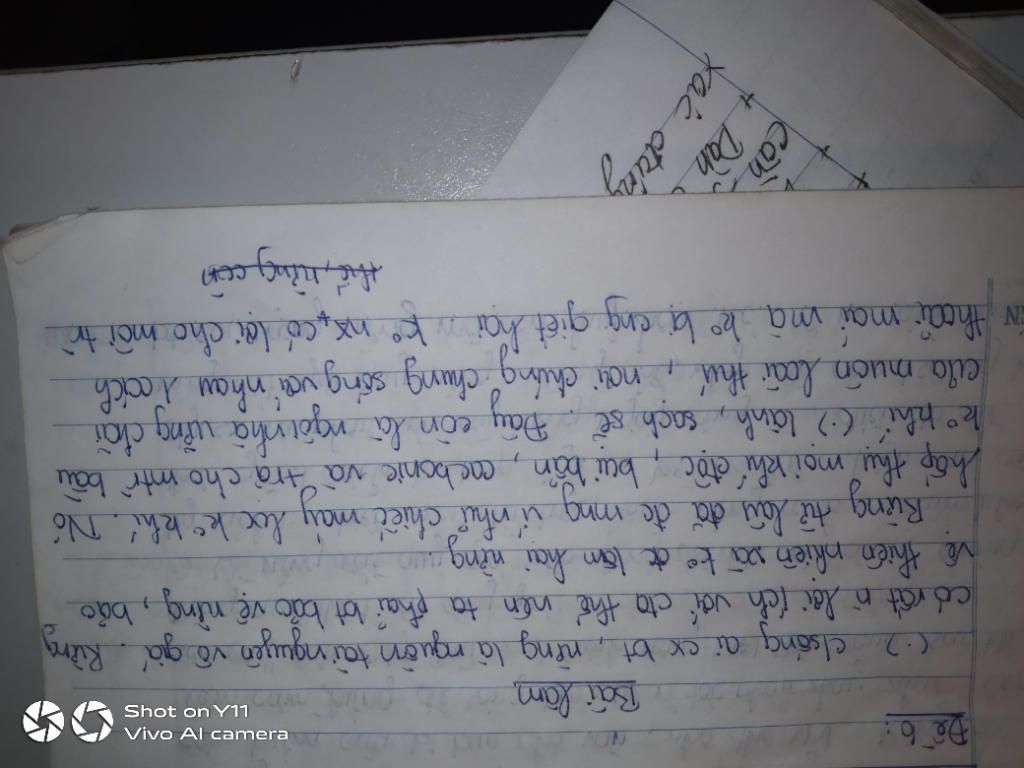 Đề 6:
Bài làm
(.) c/sống ai cx bt, rừng là nguồn tài nguyên vô giá. Rừng
có rất n̄ lợi ích với cta thế nên ta phải bt bảo vệ rừng, bảo
vệ thiên nhiên và k° đc làm hại rừng.
Rừng từ lâu đã đc mng ví như chiếc máy lọc k° khí. Nó
hấp thụ mọi khí độc, bụi bẩn, cacbonic và trả cho mtr bầu
k° khí (.) lành, sạch sẽ. Đây còn là ngôi nhà vững chãi
của muôn loài thú, nơi chúng chung sống với nhau 1 cách
thoải mái mà k° bị cng giết hại. k° nx, có lợi cho môi tr
thế, rừng còn
xác đáng
Dàn
căn
Shot on Y11
Vivo AI camera